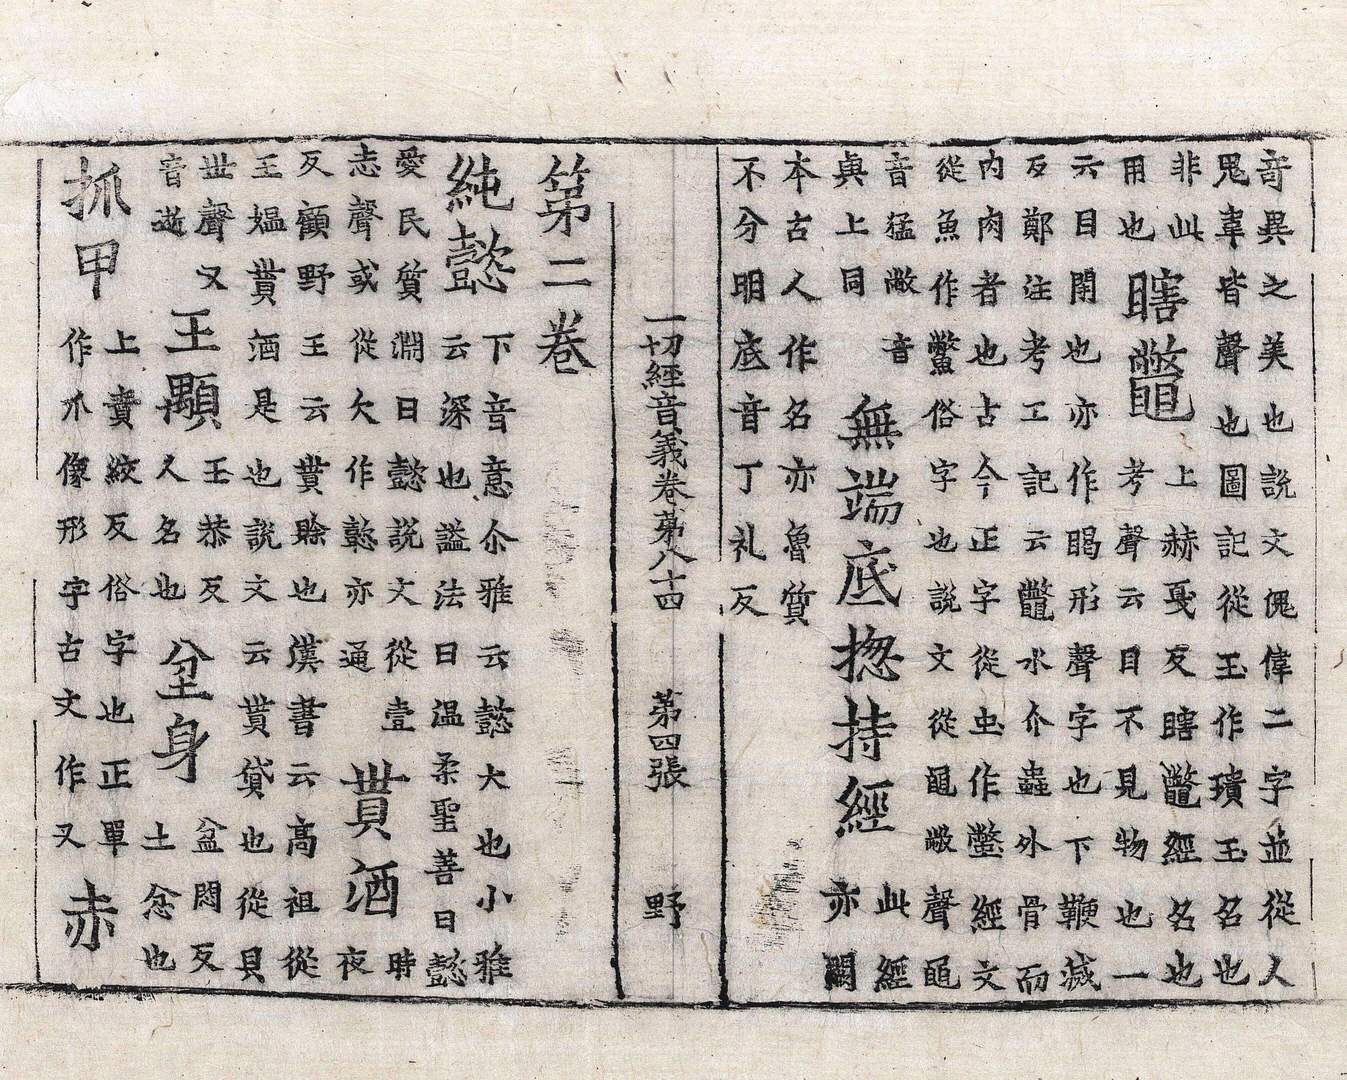 奇異之美也說文傀偉二字並從人
鬼韋皆聲也圖記從玉作瓌玉名也
非此
用也
瞎鼈
上赫戛反瞎鼈經名也
考聲云目不見物也一
云目閉也亦作形聲字也下鞭滅
反鄭注考工記云鼈水介蟲外骨而
內肉者也古今正字從虫作蟞經文
從魚作鱉俗字也說文從黽敝聲黽
音猛敝音
眞上同
無端底揔持經
此經
亦闕
本古人作名亦魯質
不分明底音丁礼反
一切經音義卷第八十四 第四張 野
第二卷
純懿
下音意尒雅云懿大也小雅
云深也謚法曰温柔聖善曰懿
愛民質淵曰懿說文從壹
志聲或從欠作懿亦通
貰酒
時
夜
反顧野王云貰賖也漢書云高祖從
王媼貰酒是也說文云貰貸也從貝
世聲又
音逝
王顒
玉恭反
人名也
坌身
盆悶反
土坌也
抓甲
上責絞反俗字也正單
作爪像形字古文作叉
赤